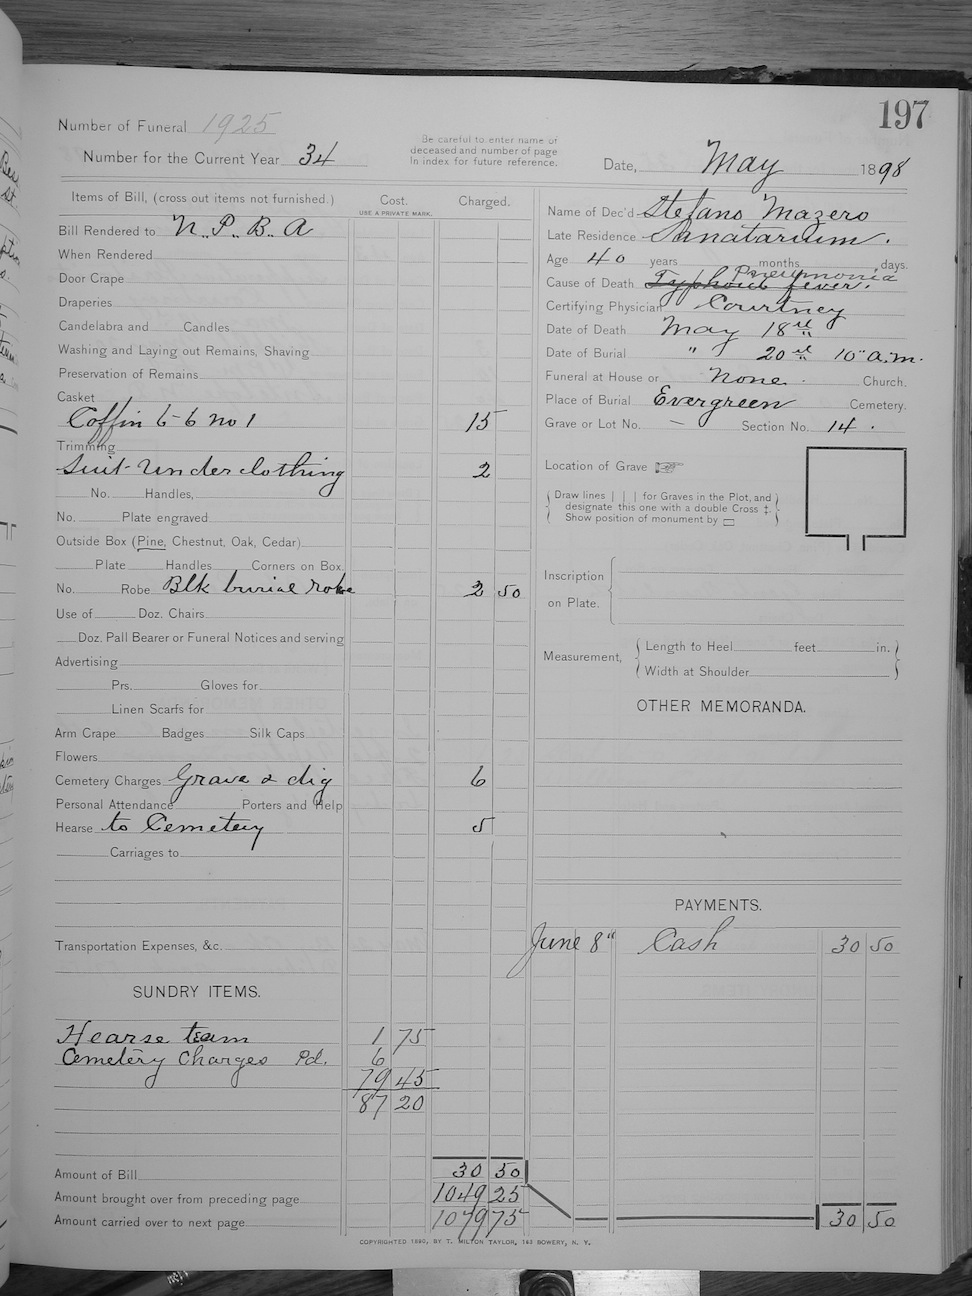 197
Number of Funeral 1925
Number for the Current Year 34
Be careful to enter name of
deceased and number of page
in index for future reference.
Date, May 1898
Items of Bill, (cross out items not furnished.) Cost. Charged.
USE A PRIVATE MARK.
Bill Rendered to N.P.B.A
When Rendered
Door Crape
Draperies
Candelabra and Candles
Washing and Laying out Remains, Shaving
Preservation of Remains
Casket
Coffin 6-6 no 1 15
Trimming
Suit Underclothing 2
No. Handles,
No. Plate engraved
Outside Box (Pine, Chestnut, Oak, Cedar)
Plate Handles Corners on Box
No. Robe Blk burial robe 2 50
Use of Doz. Chairs
Doz. Pall Bearer or Funeral Notices and serving
Advertising
Prs. Gloves for
Linen Scarfs for
Arm Crape Badges Silk Caps
Flowers
Cemetery Charges Grave & dig 6
Personal Attendance Porters and Help
Hearse to Cemetery 5
Carriages to
Transportation Expenses, &c.
SUNDRY ITEMS.
Hearse team 1 75
Cemetery Charges Pd. 6
79 45
87 20
Amount of Bill 30 50
Amount brought over from preceding page 1049 25
Amount carried over to next page 1079 75
Name of Dec'd Stefano Mazero
Late Residence Sanatarium.
Age 40 years months days.
Pneumonia
Cause of Death Typhoid fever.
Certifying Physician Courtney
Date of Death May 18th
Date of Burial " 20 10 a.m.
Funeral at House or None. Church.
Place of Burial Evergreen Cemetery.
Grave or Lot No. — Section No. 14.
Location of Grave
Draw lines | | | for Graves in the Plot, and
designate this one with a double Cross ‡.
Show position of monument by ▭
Inscription
on Plate.
Measurement, Length to Heel feet in.
Width at Shoulder
OTHER MEMORANDA.
PAYMENTS.
June 8" Cash 30 50
30 50
COPYRIGHTED 1890, BY T. MILTON TAYLOR, 163 BOWERY, N. Y.